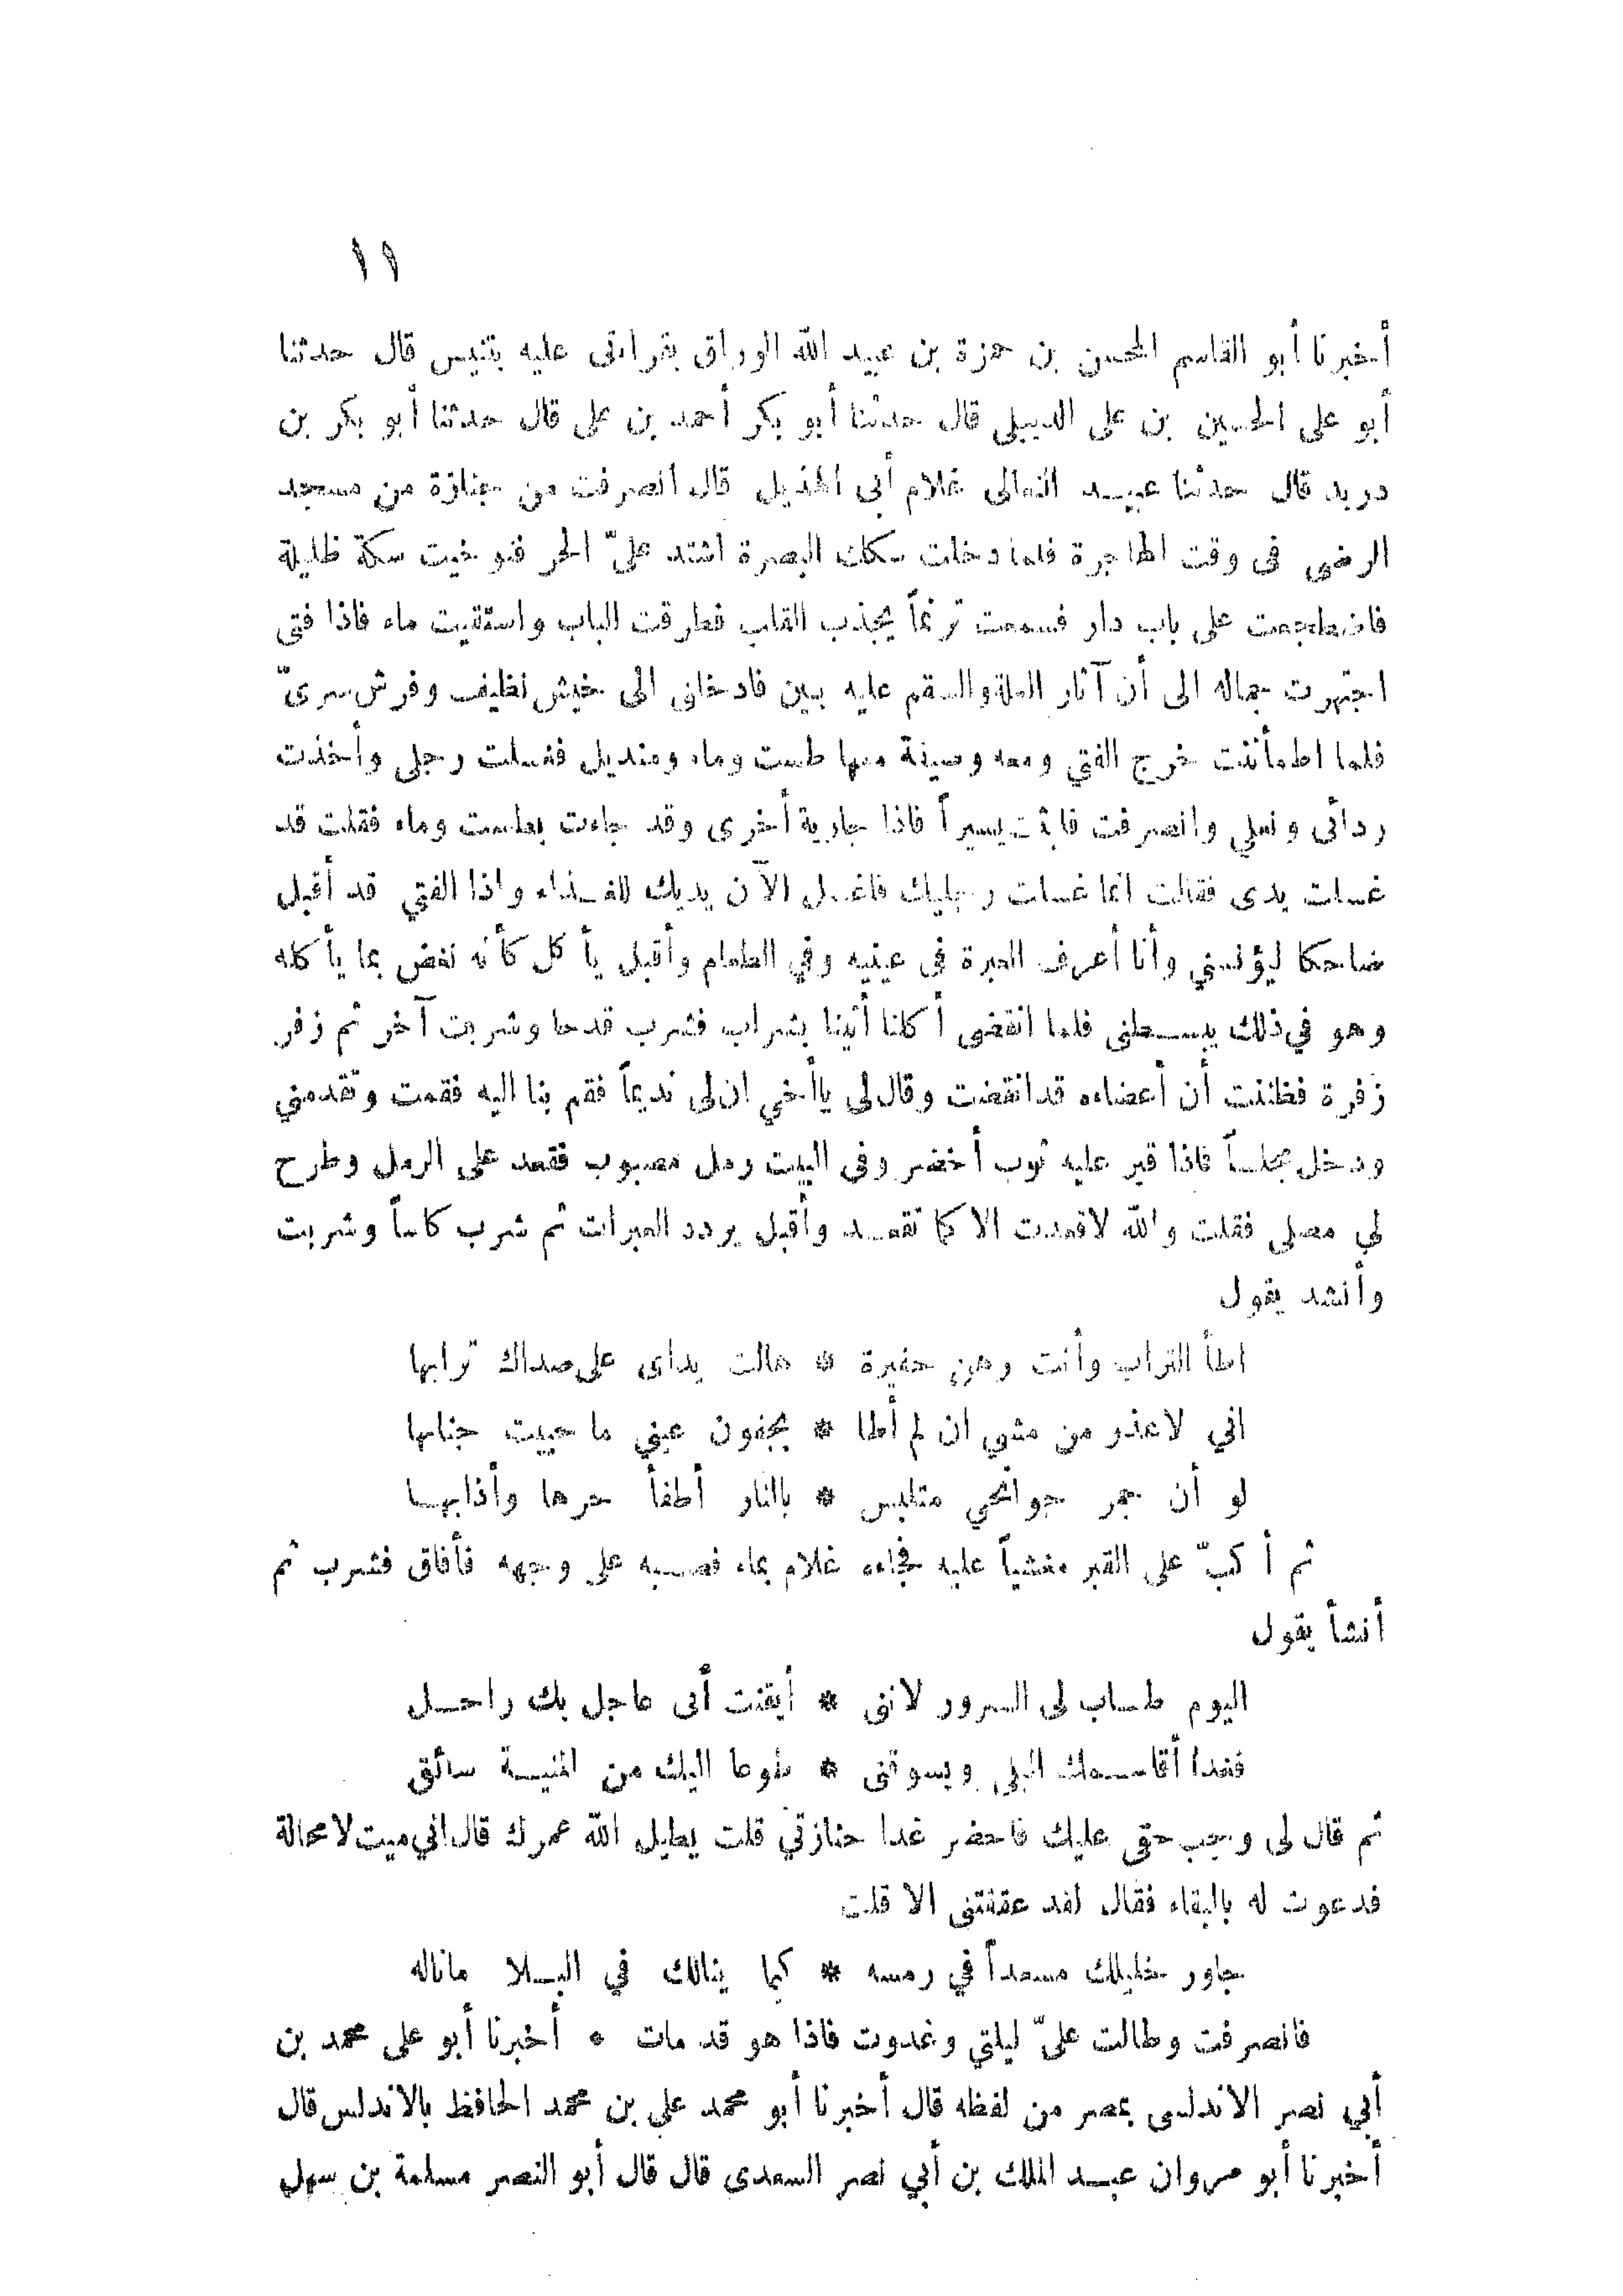 ١١
أخبرنا أبو القاسم المحسن بن حمزة بن عبيد الله الوراق بقراءتى عليه بتنيس قال حدثنا
أبو على الحسين بن على الديبلى قال حدثنا أبو بكر أحمد بن على قال حدثنا أبو بكر بن
دريد قال حدثنا عبيد النعالى غلام أبى الهذيل قال انصرفت من جنازة من مسجد
الرضى فى وقت الهاجرة فلما دخلت سكك البصرة اشتد علىّ الحر فتوخيت سكة ظليلة
فاضطجعت على باب دار فسمعت ترنماً يجذب القلب فطرقت الباب واستقيت ماء فاذا فتى
اجتهرت جماله الى أن آثار العلة والسقم عليه بين فادخلنى الى خيش نظيف وفرش سرىّ
فلما اطمأننت خرج الفتي ومعه وصيفة معها طست وماء ومنديل فغسلت رجلى وأخذت
ردائى ونعلي وانصرفت فلبثت يسيراً فاذا جارية أخرى وقد جاءت بطست وماء فقلت قد
غسلت يدى فقالت انما غسلت رجليك فاغسل الآن يديك للغذاء واذا الفتي قد أقبل
ضاحكا ليؤنسني وأنا أعرف العبرة فى عينيه وفي الطعام وأقبل يأكل كأنه نغص بما يأكله
وهو في ذلك يبسطنى فلما انقضى أكلنا أتينا بشراب فشرب قدحا وشربت آخر ثم زفر
زفرة فظننت أن أعضاءه قد انقضت وقال لى ياأخي ان لى نديماً فقم بنا اليه فقمت وتقدمني
ودخل مجلساً فاذا قبر عليه ثوب أخضر وفى البيت رمل مصبوب فقعد على الرمل وطرح
لي مصلى فقلت والله لاقعدت الا كما تقعد وأقبل يردد العبرات ثم شرب كاساً وشربت
وأنشد يقول
اطأ التراب وأنت رهن حفيرة * هالت يداى على صداك ترابها
اني لاعذر من مشى ان لم أطا * بجفون عيني ما حييت جنابها
لو أن جمر جوانحي متلبس * بالنار أطفأ حرها وأذابها
ثم أكبّ على القبر مغشياً عليه فجاءه غلام بماء فصبه على وجهه فأفاق فشرب ثم
أنشأ يقول
اليوم طاب لى السرور لاننى * أيقنت أنى عاجل بك راحل
فغدا أقاسمك البلى ويسوقنى * طوعا اليك من المنية سائق
ثم قال لى وجب حقى عليك فاحضر غدا جنازتي قلت يطيل الله عمرك قال اني ميت لا محالة
فدعوت له بالبقاء فقال لقد عققتنى الا قلت
جاور خليلك مسعداً في رمسه * كيما ينالك في البلا ماناله
فانصرفت وطالت علىّ ليلتي وغدوت فاذا هو قد مات • أخبرنا أبو على محمد بن
أبي نصر الاندلسى بمصر من لفظه قال أخبرنا أبو محمد علي بن محمد الحافظ بالاندلس قال
أخبرنا أبو مروان عبد الملك بن أبي نصر السعدى قال قال أبو النصر مسلمة بن سهل